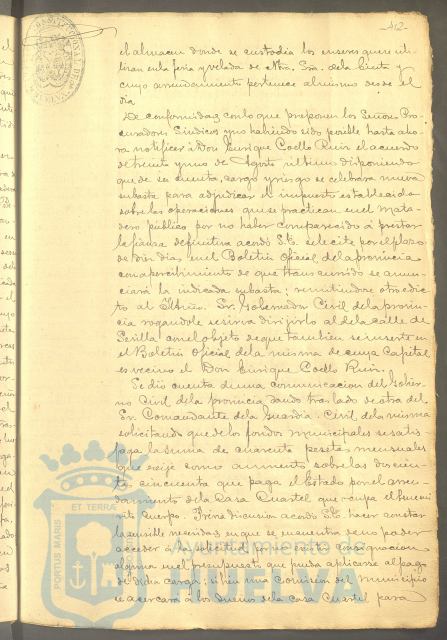 412
el almacen donde se custodia los enseres que uti-
lizan en la feria y velada de Ntra. Sra. de la Cinta y
cuyo arrendamiento pertenece al mismo desde el
dia
De conformidad con lo que proponen los Señores Pro-
curadores Síndicos y no habiendo sido posible hasta aho-
ra notificar á Don Enrique Coello Ruiz el acuerdo
de treinta y uno de Agosto último disponiendo
que de su cuenta, cargo y riesgo se celebrara nueva
subasta para adjudicar el impuesto establecido
sobre las operaciones que se practican en el Mata-
dero público por no haber comparecido á prestar
la fianza definitiva acordó S.E. se le cite por el plazo
de diez dias en el Boletin Oficial de la provincia
con apercibimiento de que transcurrido se anun-
ciará la indicada subasta; remitiendose otro edic-
to al Excmo. Sr. Gobernador Civil de la provin-
cia rogandole se sirva dirigirlo al de la calle de
Sevilla con el objeto de que tambien se inserte en
el Boletin Oficial de la misma de cuya Capital
es vecino el Don Enrique Coello Ruiz.
Se dió cuenta de una comunicacion del Gobier-
no Civil de la provincia dando traslado de otra del
Sr. Comandante de la Guardia Civil de la misma
solicitando que de los fondos municipales se satis-
faga la suma de cuarenta pesetas mensuales
que exije como aumento sobre las doscien-
tas cincuenta que paga el Estado por el arren-
damiento de la Casa Cuartel que ocupa el beneme-
rito Cuerpo. Previa discusion acordó S.E. hacer constar
la sensible en que se encuentra de no poder
acceder á lo solicitado por no existir consignacion
alguna en el presupuesto que pueda aplicarse al pago
de dicha carga; si bien una Comision del municipio
se acercará á los dueños de la casa Cuartel para
PORTUS MARIS ET TERRAE
Ayuntamiento de
HUELVA